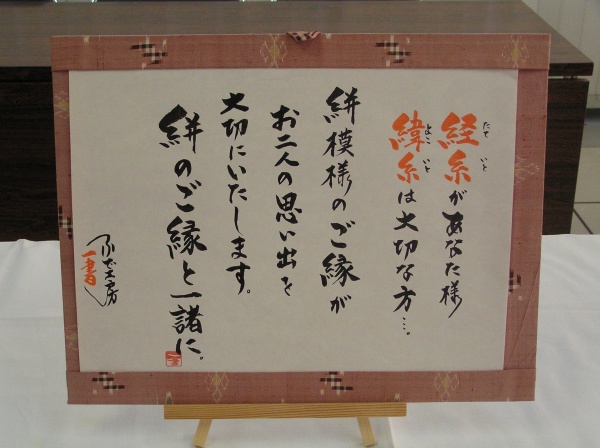 経糸があなた様
たていと
緯糸は大切な方…。
よこいと
絣模様のご縁が
お二人の思い出を
大切にいたします。
絣のご縁と一諸に。
一書